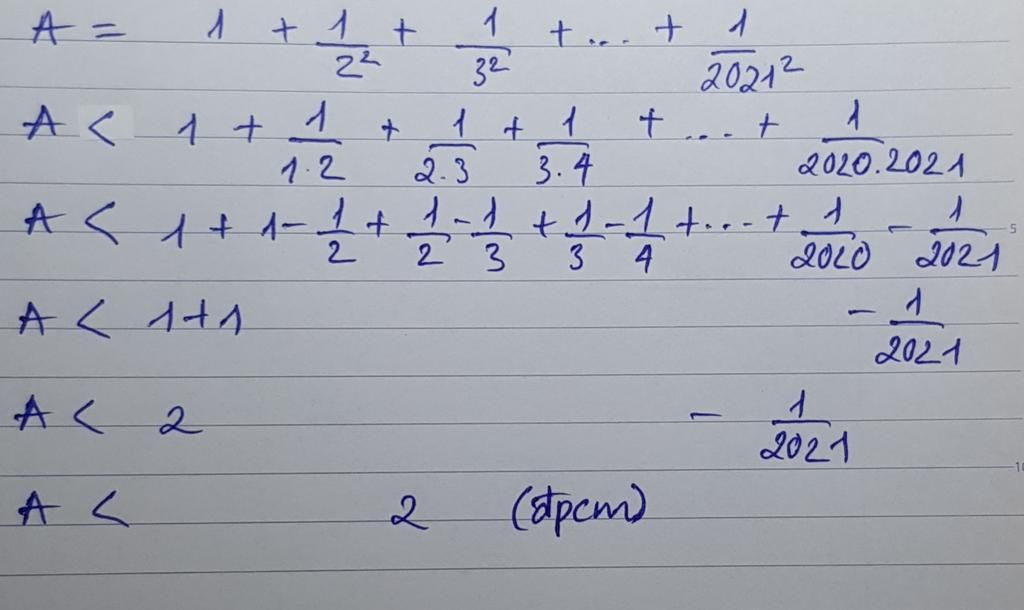 A = 1 + 1/2² + 1/3² + ... + 1/2021²
A < 1 + 1/1.2 + 1/2.3 + 1/3.4 + ... + 1/2020.2021
A < 1 + 1 - 1/2 + 1/2 - 1/3 + 1/3 - 1/4 + ... + 1/2020 - 1/2021
5
A < 1 + 1 - 1/2021
A < 2 - 1/2021
10
A < 2 (đpcm)